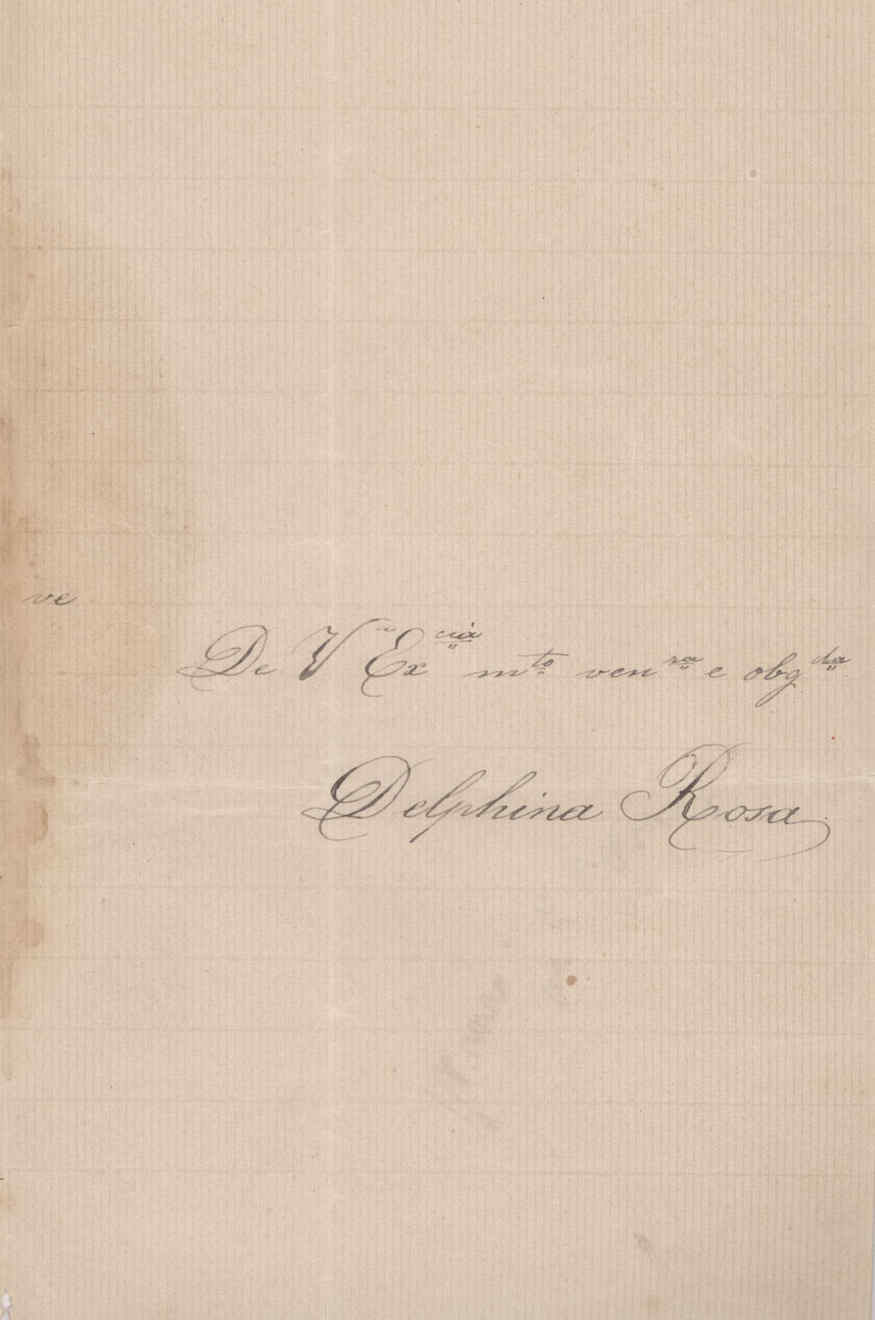 ve
De Vª Ex^cia m^to ven^ra e obg^da
Delphina Rosa